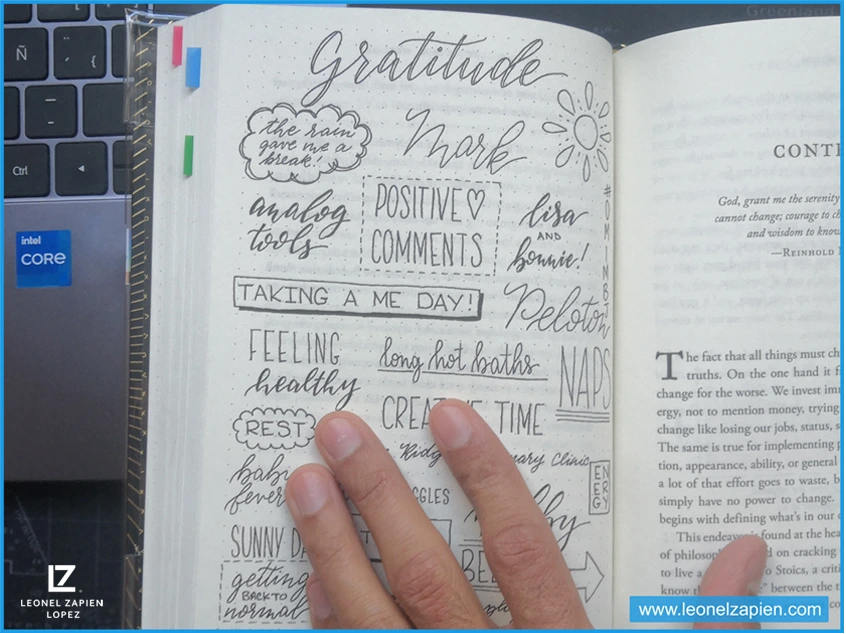 Gratitude
the rain
gave me a
break!
Mark
analog
tools
POSITIVE
COMMENTS
lisa
AND
bonnie!
TAKING A ME DAY!
Peloton
FEELING
healthy
long hot baths
NAPS
REST
TIME
Clinic
ENERGY
fever
SUNNY
getting
BACK TO
normal
Ñ
Ctrl
intel
CORE
God, grant me the serenity
cannot change; courage to
and wisdom to
—REINHOLD
The fact that all things must
truths. On the one hand it
change for the worse. We invest
ergy, not to mention money, trying
change like losing our jobs, status,
The same is true for implementing
tion, appearance, ability, or general
a lot of that effort goes to waste,
simply have no power to change.
begins with defining what's in our
This found at the
of on cracking
to live a Stoics, a
know between the
LZ
LEONEL ZAPIEN
LOPEZ
www.leonelzapien.com